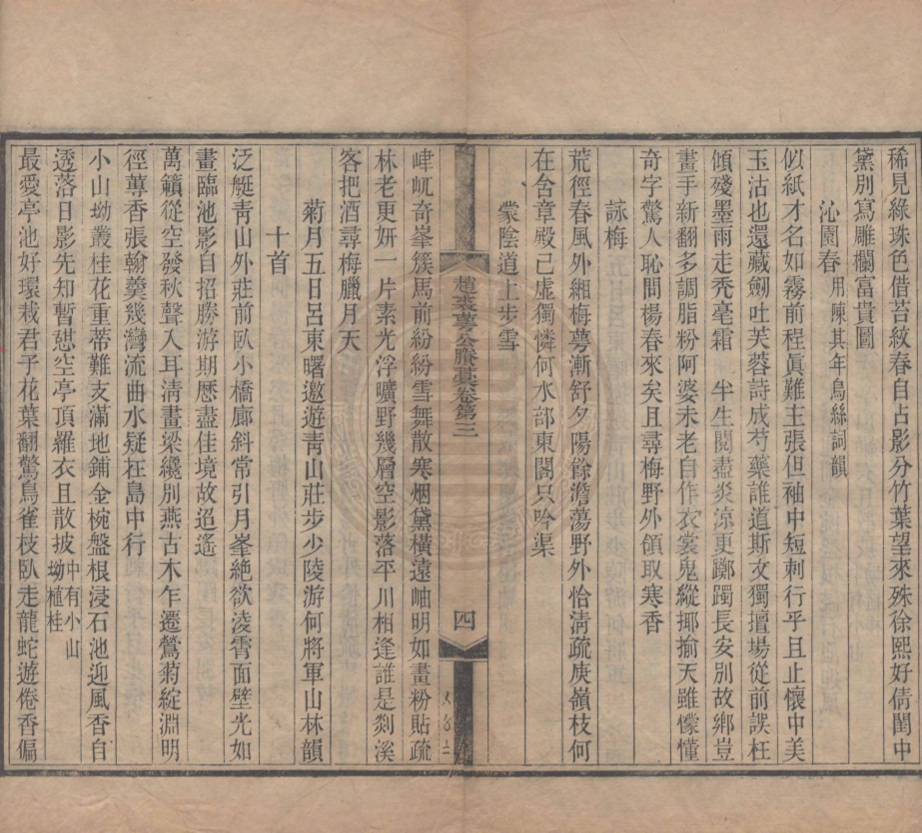 稀見綠珠色借苔紋春自占影分竹葉望來殊徐熙好倩閨中
黛別寫雕欄富貴圖
沁園春用陳其年烏絲詞韻
似紙才名如霧前程眞難主張但袖中短刺行乎且止懷中美
玉沽也還藏劒吐芙蓉詩成芍藥誰道斯文獨擅場從前誤枉
傾殘墨雨走禿毫霜 半生閱盡炎涼更躑躅長安別故鄉豈
畫手新翻多調脂粉阿婆未老自作衣裳鬼縱揶揄天雖懞懂
奇字驚人恥問楊春來矣且尋梅野外領取寒香
詠梅
荒徑春風外緗梅蕚漸舒夕陽餘澹蕩野外恰淸疏庾嶺枝何
在含章殿已虛獨憐何水部東閣只吟渠
蒙陰道上步雪
峍屼奇峯簇馬前紛紛雪舞散寒烟黛橫遠岫明如畫粉貼疏
林老更妍一片素光浮曠野幾層空影落平川相逢誰是剡溪
客把酒尋梅臘月天
菊月五日呂東曙邀遊靑山莊步少陵游何將軍山林韻
十首
泛艇靑山外莊前臥小橋廊斜常引月峯絶欲淩霄面壁光如
畫臨池影自招勝游期歷盡佳境故迢遙
萬籟從空發秋聲入耳淸畫梁纔別燕古木乍遷鶯菊綻淵明
徑蓴香張翰羹幾灣流曲水疑在島中行
小山坳叢桂花重蒂難支滿地鋪金椀盤根浸石池迎風香自
透落日影先知暫憇空亭頂羅衣且散披中有小山坳植桂
最愛亭池好環栽君子花葉翻驚鳥雀枝臥走龍蛇遊倦香偏
卷第三
四